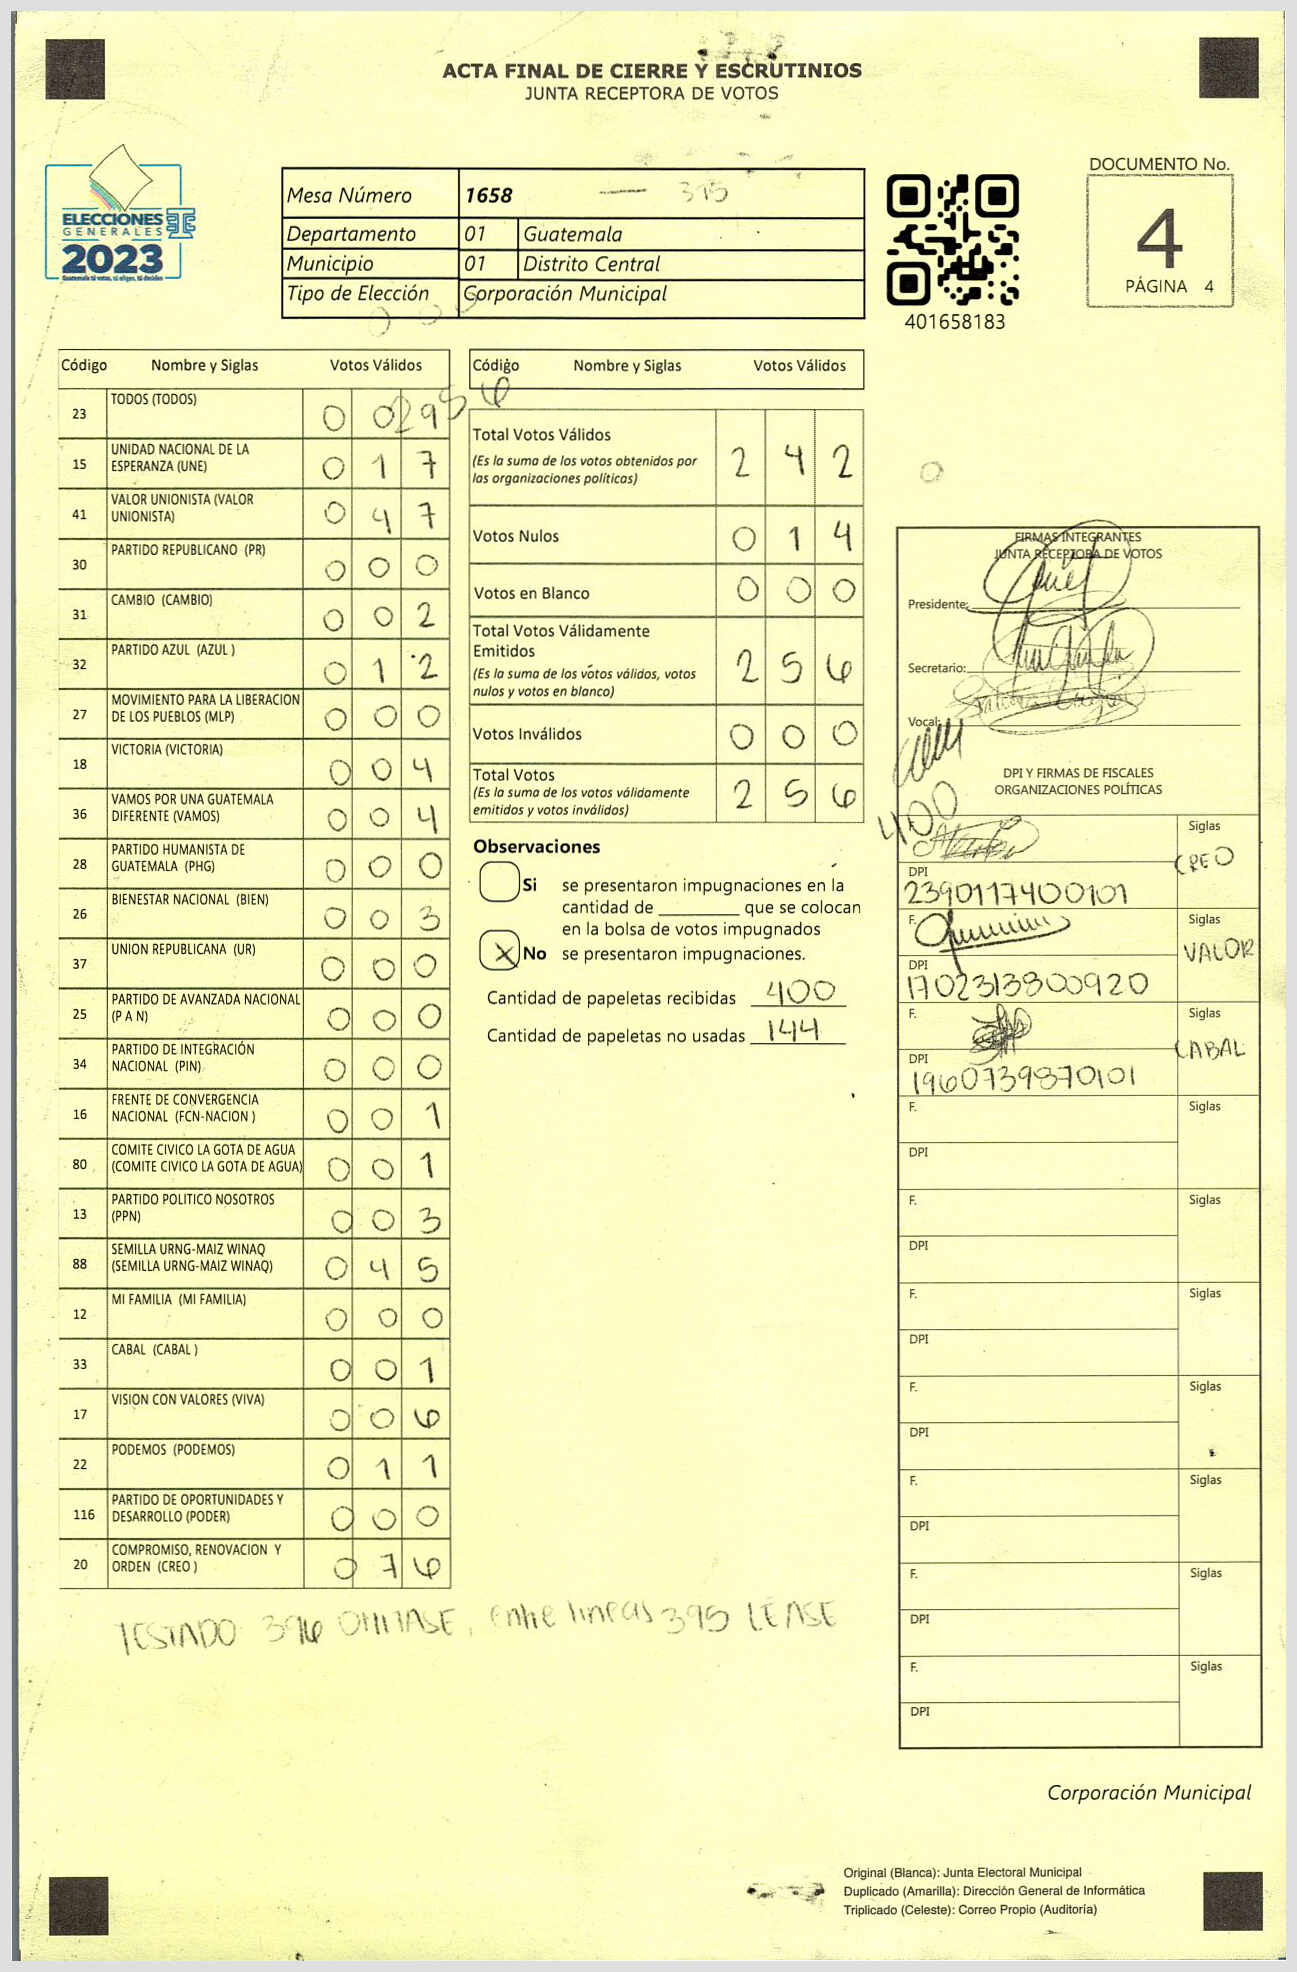 ACTA FINAL DE CIERRE Y ESCRUTINIOS
JUNTA RECEPTORA DE VOTOS
ELECCIONES
GENERALES
2023
Mesa Número 1658
Departamento 01 Guatemala
Municipio 01 Distrito Central
Tipo de Elección Corporación Municipal
401658183
DOCUMENTO No.
4
PÁGINA 4
Código Nombre y Siglas Votos Válidos
23 TODOS (TODOS) 0 0 9
15 UNIDAD NACIONAL DE LA ESPERANZA (UNE) 0 1 7
41 VALOR UNIONISTA (VALOR UNIONISTA) 0 4 7
30 PARTIDO REPUBLICANO (PR) 0 0 0
31 CAMBIO (CAMBIO) 0 0 2
32 PARTIDO AZUL (AZUL ) 0 1 2
27 MOVIMIENTO PARA LA LIBERACION DE LOS PUEBLOS (MLP) 0 0 0
18 VICTORIA (VICTORIA) 0 0 4
36 VAMOS POR UNA GUATEMALA DIFERENTE (VAMOS) 0 0 4
28 PARTIDO HUMANISTA DE GUATEMALA (PHG) 0 0 0
26 BIENESTAR NACIONAL (BIEN) 0 0 3
37 UNION REPUBLICANA (UR) 0 0 0
25 PARTIDO DE AVANZADA NACIONAL (P A N) 0 0 0
34 PARTIDO DE INTEGRACIÓN NACIONAL (PIN) 0 0 0
16 FRENTE DE CONVERGENCIA NACIONAL (FCN-NACION ) 0 0 1
80 COMITE CIVICO LA GOTA DE AGUA (COMITE CIVICO LA GOTA DE AGUA) 0 0 1
13 PARTIDO POLITICO NOSOTROS (PPN) 0 0 3
88 SEMILLA URNG-MAIZ WINAQ (SEMILLA URNG-MAIZ WINAQ) 0 4 5
12 MI FAMILIA (MI FAMILIA) 0 0 0
33 CABAL (CABAL ) 0 0 1
17 VISION CON VALORES (VIVA) 0 0 6
22 PODEMOS (PODEMOS) 0 1 1
116 PARTIDO DE OPORTUNIDADES Y DESARROLLO (PODER) 0 0 0
20 COMPROMISO, RENOVACION Y ORDEN (CREO ) 0 7 6
TESTADO 396 OMITASE, entre lineas 395 LEASE
Código Nombre y Siglas Votos Válidos
Total Votos Válidos 2 4 2
(Es la suma de los votos obtenidos por
las organizaciones políticas)
Votos Nulos 0 1 4
Votos en Blanco 0 0 0
Total Votos Válidamente
Emitidos 2 5 6
(Es la suma de los votos válidos, votos
nulos y votos en blanco)
Votos Inválidos 0 0 0
Total Votos 2 5 6
(Es la suma de los votos válidamente
emitidos y votos inválidos)
Observaciones
Si se presentaron impugnaciones en la
cantidad de ________ que se colocan
en la bolsa de votos impugnados
X No se presentaron impugnaciones.
Cantidad de papeletas recibidas 400
Cantidad de papeletas no usadas 144
FIRMAS INTEGRANTES
JUNTA RECEPTORA DE VOTOS
Presidente:
Secretario:
Vocal:
DPI Y FIRMAS DE FISCALES
ORGANIZACIONES POLÍTICAS
400
Siglas CREO
DPI 2390117400101
F. Siglas VALOR
DPI 1702313800920
F. Siglas CABAL
DPI 1960739870101
F. Siglas
DPI
F. Siglas
DPI
F. Siglas
DPI
F. Siglas
DPI
F. Siglas
DPI
F. Siglas
DPI
F. Siglas
DPI
Corporación Municipal
Original (Blanca): Junta Electoral Municipal
Duplicado (Amarilla): Dirección General de Informática
Triplicado (Celeste): Correo Propio (Auditoría)